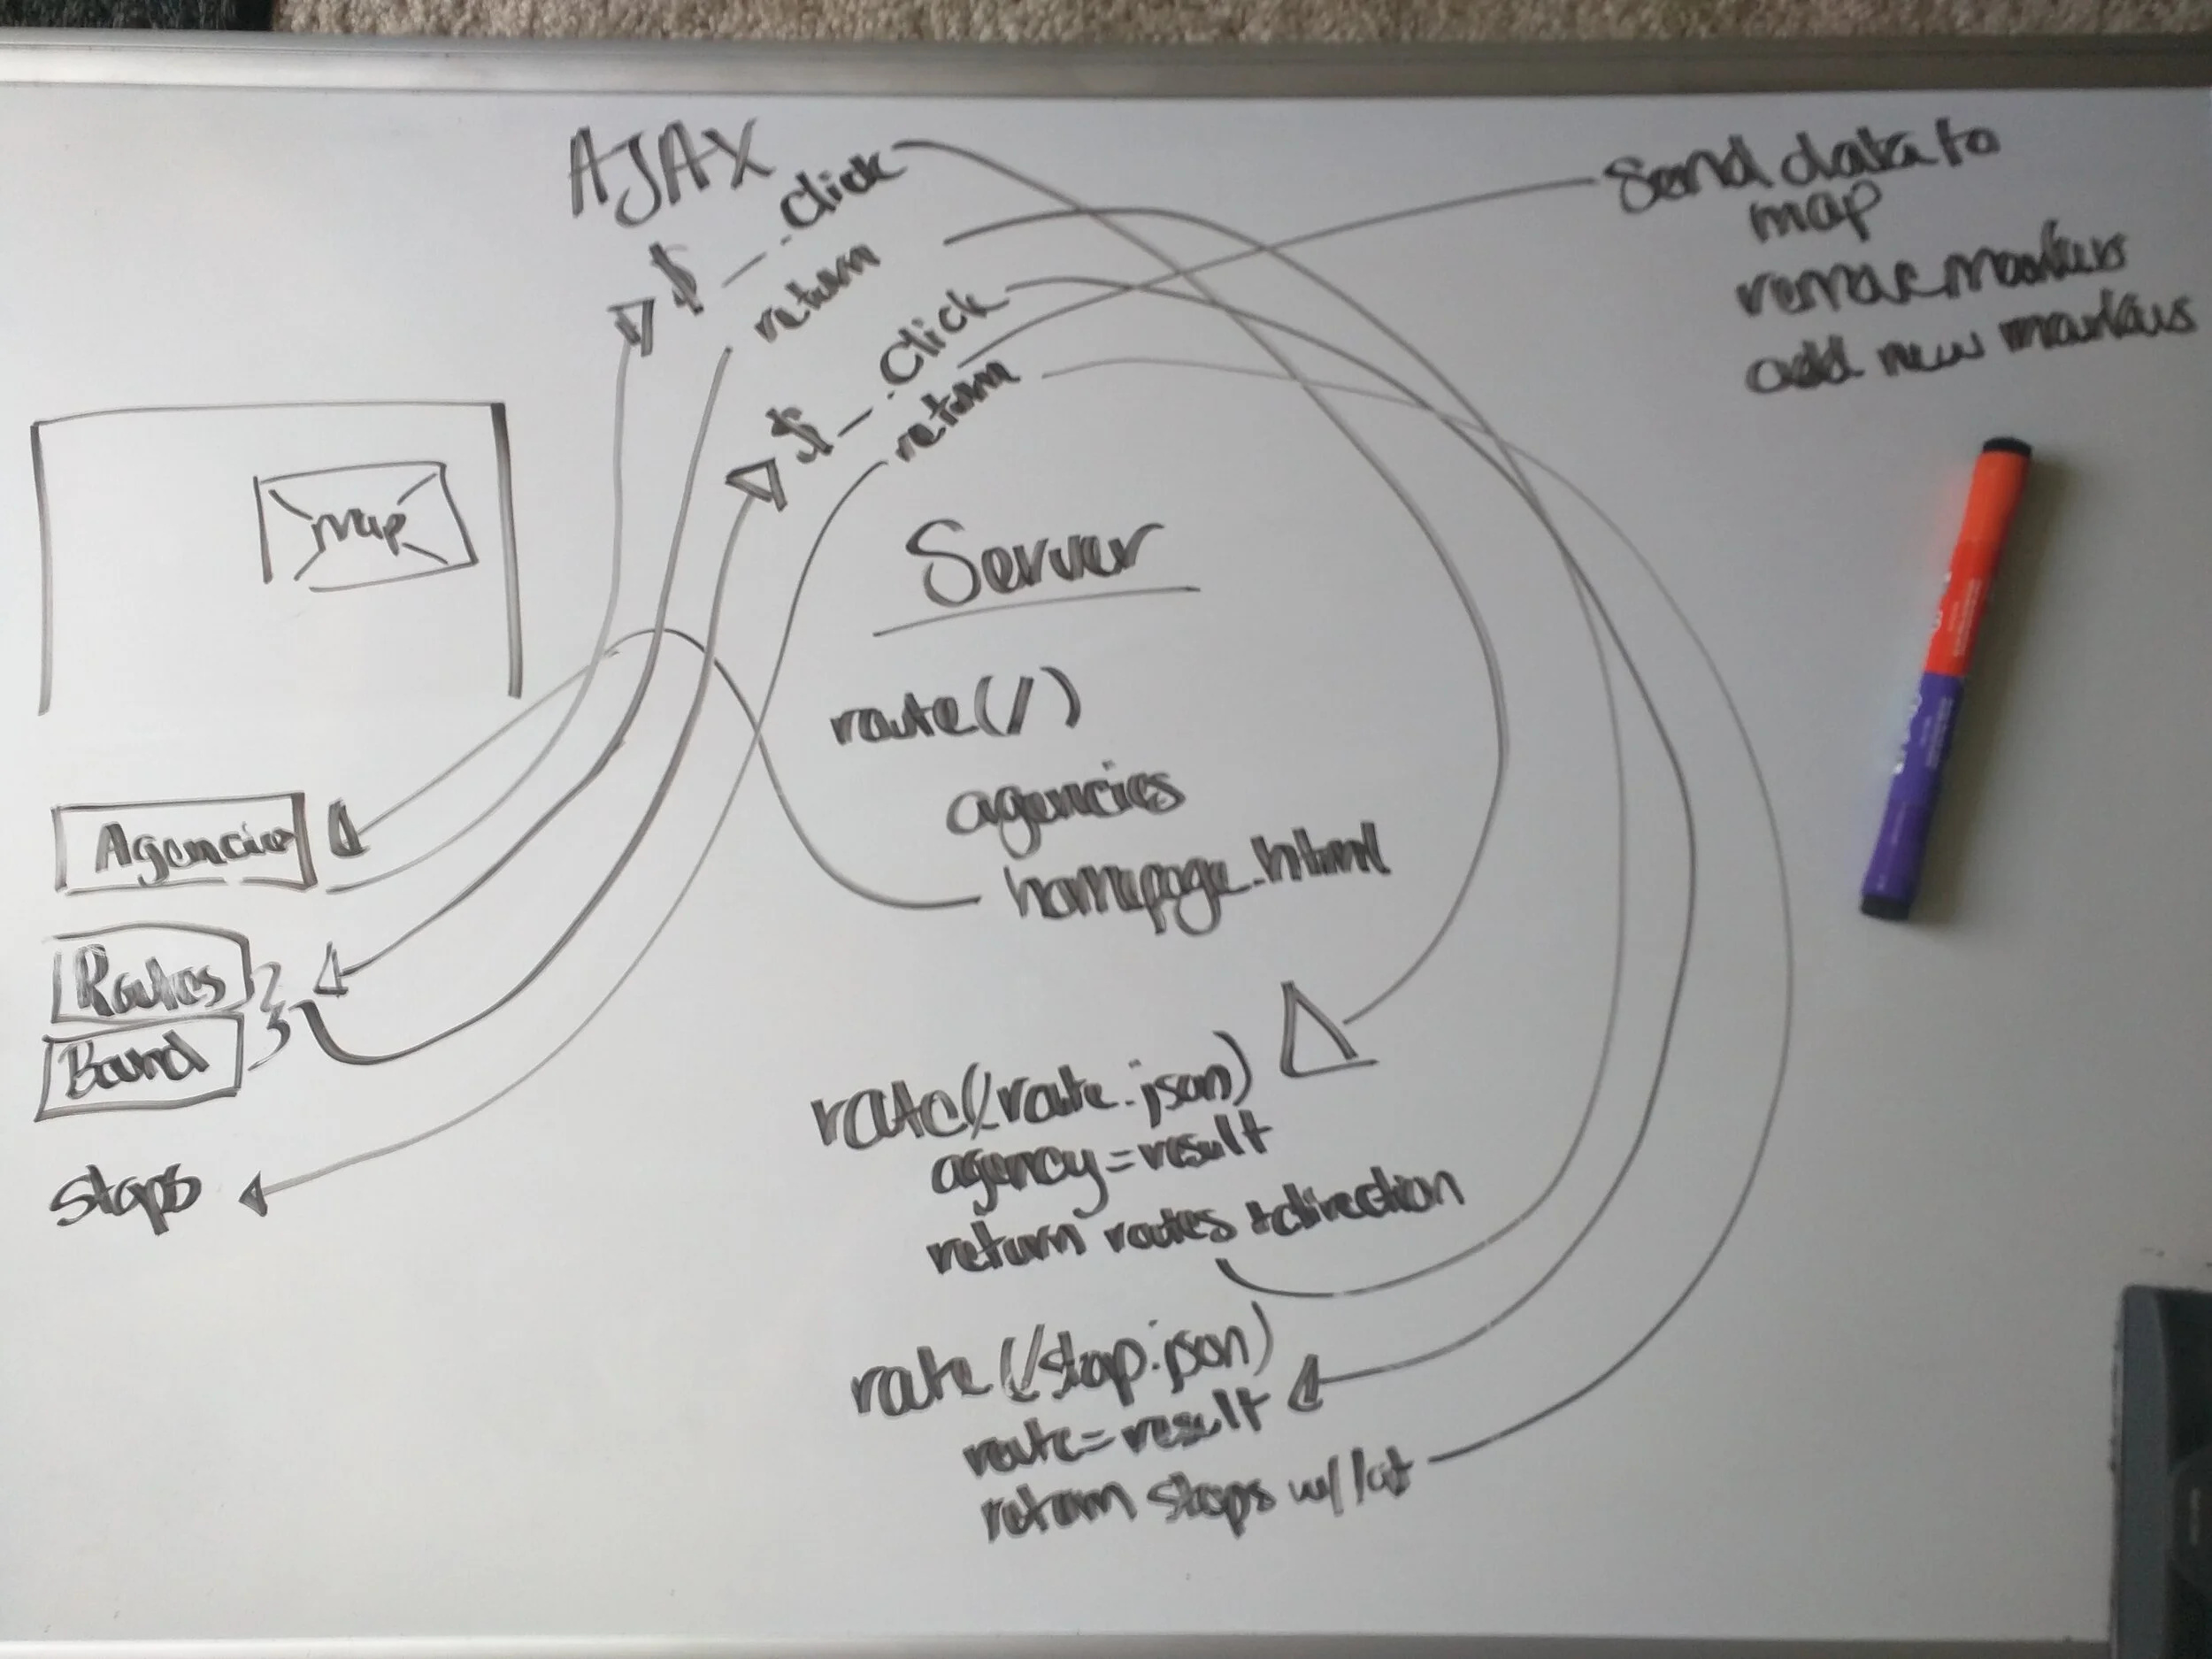 AJAX
$ - click
return
$ - click
return
Send data to
map
remove markers
add new markers
map
Server
route(/)
agencies
homepage.html
Agencies
Routes
Bound
stops
route(/route.json)
agency=result
return routes + direction
route(/stop.json)
route=result
return stops w/ lat